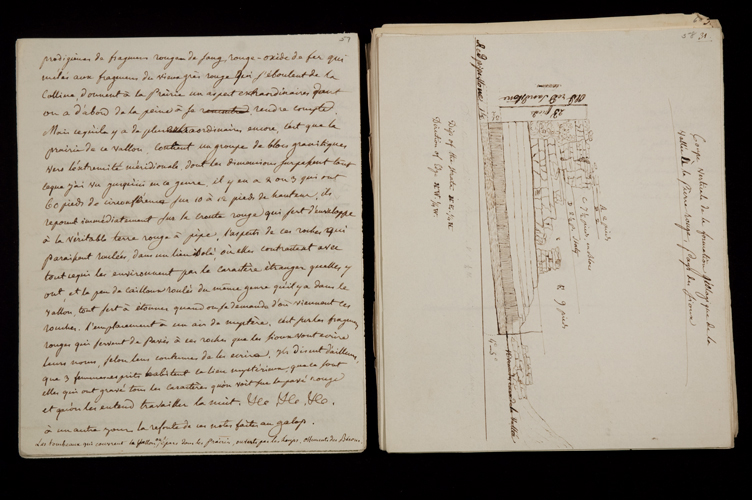 57
prodigieux de fragmens rouge de sang, rouge-oxide de fer qui
mêlés aux fragmens du vieux grès rouge qui s'éboulent de la
Colline, donnent à la Prairie un aspect extraordinaire dont
on a d'abord de la peine à se rendre compte.
Mais ce qu'il y a de plus extraordinaire encore, c'est que la
prairie de ce vallon contient un groupe de blocs granitiques
vers l'extrémité méridionale, dont les dimensions surpassent tout
ce que j'ai vu jusqu'ici en ce genre, il y en a 2 ou 3 qui ont
60 pieds de circonférence sur 10 à 12 pieds de hauteur, ils
reposent immédiatement sur la croute rouge qui sert d'enveloppe
à la véritable terre rouge à pipe, l'aspect de ces roches qui
paraissent roulées, dans un lieu isolé, où elles contrastent avec
tout ce qui les environnent par le caractère étranger qu'elles y
ont, et le peu de cailloux roulés du même genre qu'il y a dans le
vallon, tout sert à étonner quand on se demande d'où viennent ces
roches. L'emplacement a un air de mystère, c'est sur les fragmens
rouges qui servent de pavés à ces roches que les sioux vont écrire
leurs noms, selon leurs coutumes de les écrire, ils disent d'ailleurs
que 3 femmes esprits habitent ce lieu mystérieux, que ce sont
elles qui ont gravé tous les caractères qu'on voit sur le pavé rouge
et qu'on les entend travailler la nuit. &c &c &c.
à un autre jour la refonte de ces notes faites au galop.
Les tombeaux qui couvrent le vallon, épars dans les prairies
58
Coupe verticale de la formation géologique de la
vallée de la Pierre rouge, Pays des Sioux
A. 2 pieds
R 9 pieds
23 pieds
Old red Sandstone
Red pipestone 1½
Dip of the strata
Direction of Dip